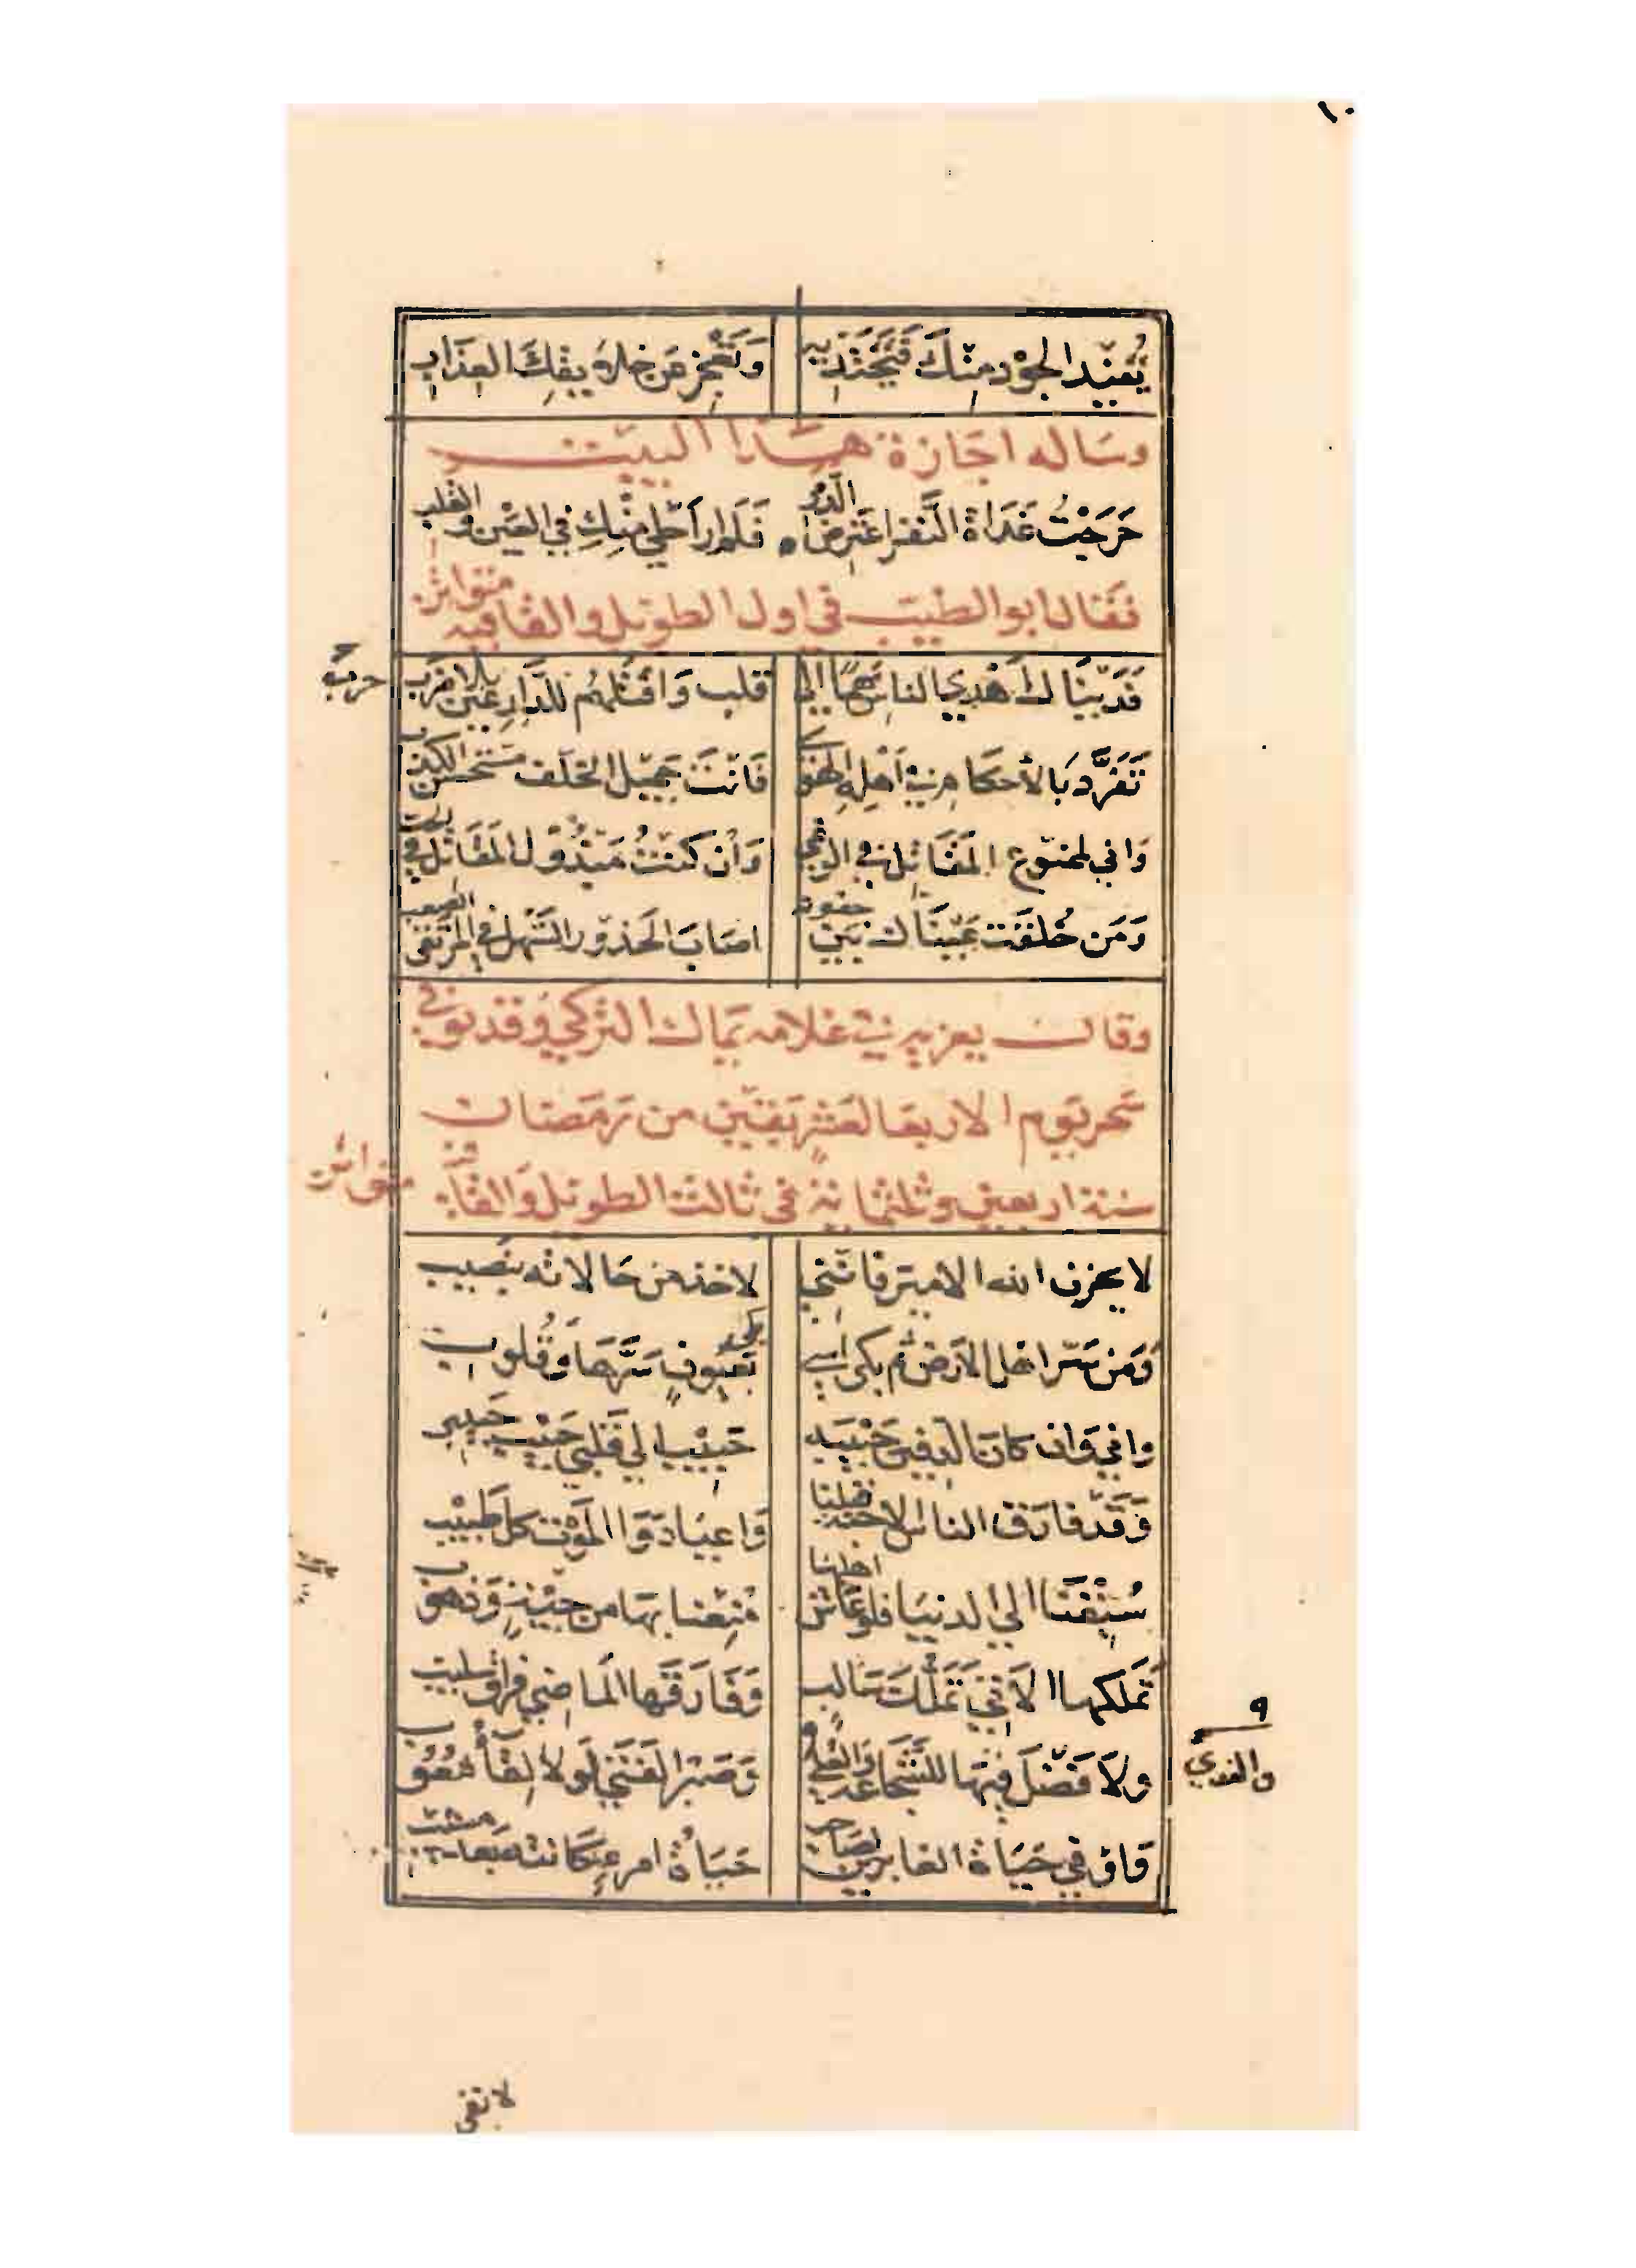 ١٠
تُفِيدُ الجُوْدَ مِنْكَ فَتَحْتَذِيهِ وَتَعْجِزُ عَن خلائقِكَ العِذَابِ
وسَاله اجَازة هَذا البيت
خَرَجْتُ غَدَاةَ النَّفر اعْتَرِضُ الدُّمى فَلَم اَرَ اَحْلى مِنْكِ في العَيْنِ والقلب
فقال ابو الطيب في اول الطويل والقافيه متواتر
فَدَيْنَاكَ اَهْدى الناسِ سَهْمًا الى قلب وَاقْتَلَهُم للدَّارِعِينَ بلا حَرب
حرب
تَفَرَّدَ بالأحكام في اَهْلِهِ الهَوى فَانْتَ جَميل الخلف مستحسن الكذب
وَاني لممنوع المَقَاتل في الوغى وَاِن كنتُ مَبْذُول المَقَاتل في الحب
وَمَن خُلقَت عَيْنَاكَ بَين جفونه اصَابَ الحَدُور السَّهل في المرتقى الصعب
وقال يعزيه في غلامه يماك التركي وقد توفي
سَحَر يَوم الاربعا لعَشر بقين من رمَضان
سنة اربعين وثلثماية في ثالث الطويل وَالقافية متواتر
لا يحزن الله الاميرَ فانني لاخذ من حَالاته بنَصيب
وَمَن سَرّ اهل الارَض ثم بكى اسى بكى بعُيونٍ سَرَّهَا وَقُلوب
واني وَان كانَ الدفين حَبيبَه حَبيْب الى قَلبي حَبيْب حَبيبي
وَقَد فارَق الناسُ الاحبة قبلنا وَاعيَا دوَا الموْت كل طَبيْب
سُبِقْنَا الى الدنيَا فلو عَاش اهلها مُنِعْنا بهَا من جَيْئةٍ وَذهوب
تَمَلكهَا الآتي تَمَلُّكَ سَالب وَفَارَقَها المَاضي فراق سليب
ولَا فَضْلَ فيهَا للشَّجَاعةِ والنَّدى وَصَبْر الفَتى لَولا لِقَاءُ شعُوب
والندي
٩
وَاَوفى حَيَاة الغابرين لصَاحب حَيَاةُ امرءٍ خَانته بَعد مشيب
لا تقى